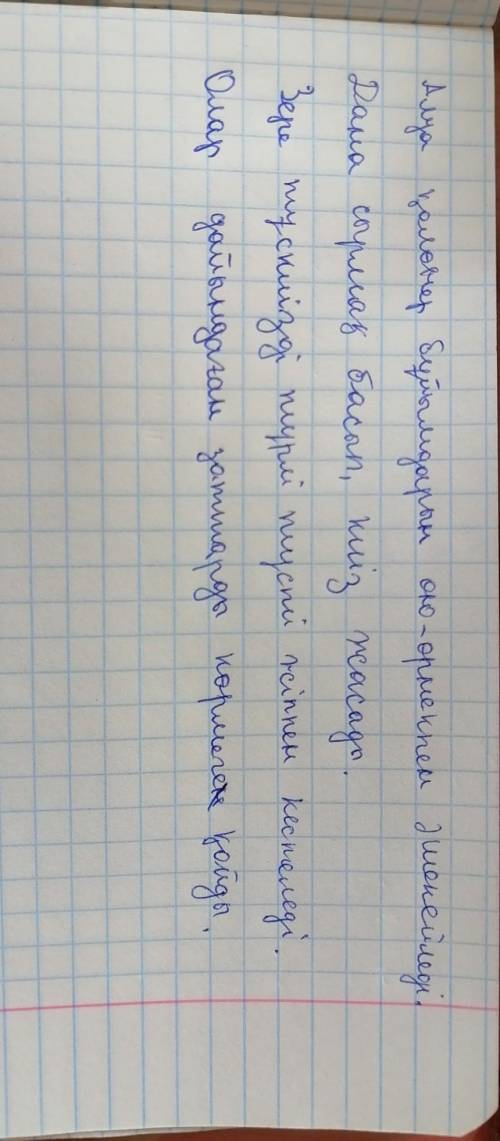 Алуа қолөнер бұйымдарын ою-өрнекпен әшекейледі.
Дана сырмақ басып, киіз жасады.
Зере тұскиізді түрлі түсті жіппен кестеледі.
Олар дайындаған заттарды көрмеге қойды.